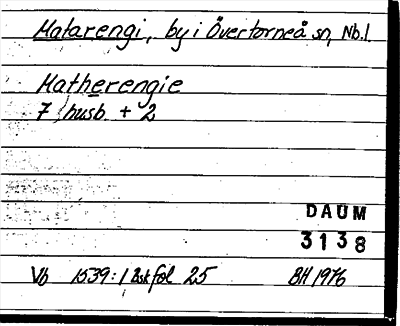 Matarengi, by i Övertorneå sn, Nb.l.
Matherengie
7 husb + 2
DAUM
3138
Vb 1539:1 Bsk fol 25 BH 1976